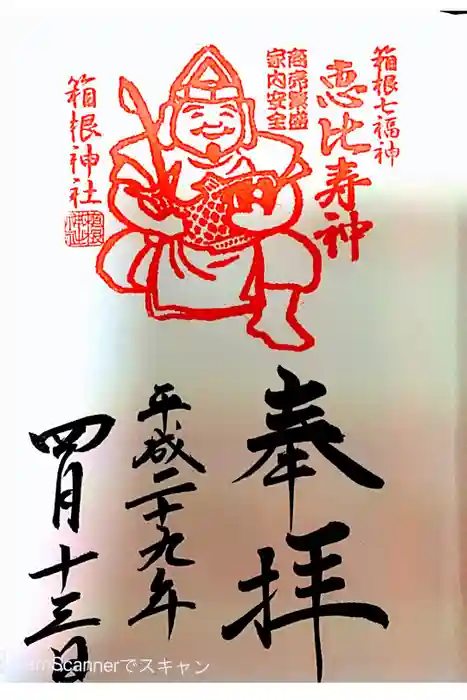 箱根七福神
恵比寿神
商売繁盛
家内安全
箱根神社
奉拝
平成二十九年
四月十三日
amScannerでスキャン